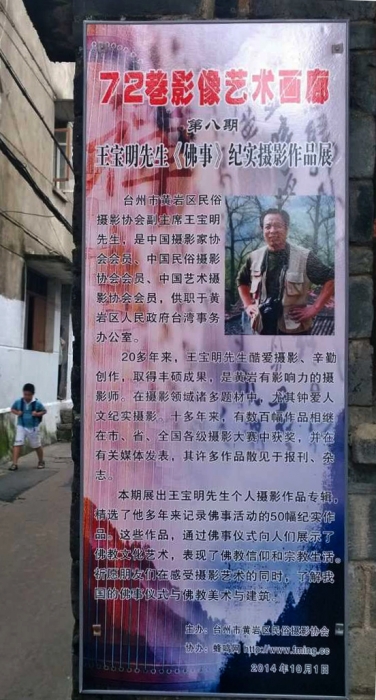 72巷影像艺术画廊
第八期
王宝明先生《佛事》纪实摄影作品展
台州市黄岩区民俗
摄影协会副主席王宝明
先生，是中国摄影家协
会会员、中国民俗摄影
协会会员、中国艺术摄
影协会会员，供职于黄
岩区人民政府台湾事务
办公室。
20多年来，王宝明先生酷爱摄影、辛勤
创作，取得丰硕成果，是黄岩有影响力的摄
影师。在摄影领域诸多题材中，尤其钟爱人
文纪实摄影。十多年来，有数百幅作品相继
在市、省、全国各级摄影大赛中获奖，并在
有关媒体发表，其许多作品散见于报刊、杂
志。
本期展出王宝明先生个人摄影作品专辑，
精选了他多年来记录佛事活动的50幅纪实作
品。这些作品，通过佛事仪式向人们展示了
佛教文化艺术，表现了佛教信仰和宗教生活。
祈愿朋友们在感受摄影艺术的同时，了解我
国的佛事仪式与佛教美术与建筑。
主办：台州市黄岩区民俗摄影协会
协办：蜂鸣网 http://www.fming.cc
2014年10月1日